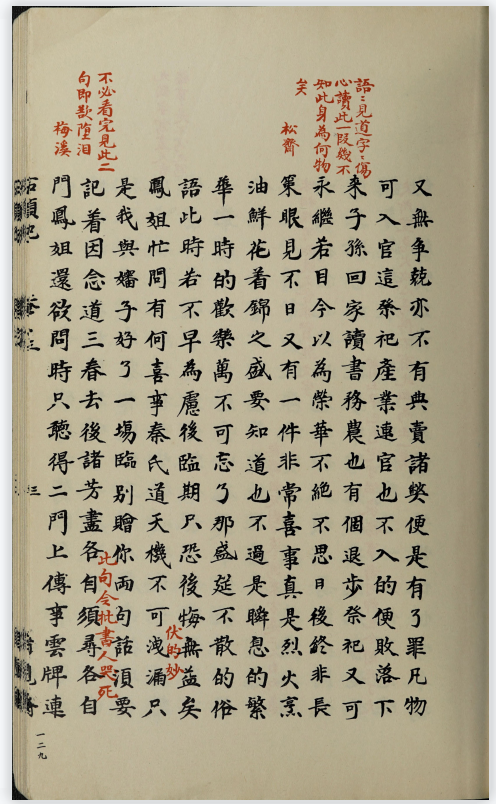 語:見道字:傷
心讀此一段幾不
知此身為何物
矣
松齋
不必看完見此二
句即欲墮泪
梅溪
又無爭競亦不有典賣諸獘便是有了罪凡物
可入官這祭祀產業連官也不入的便敗落下
來子孫回家讀書務農也有個退步祭祀又可
永繼若目今以為榮華不絕不思日後終非長
策眼見不日又有一件非常喜事真是烈火烹
油鮮花着錦之盛要知道也不過是瞬息的繁
華一時的歡樂萬不可忘了那盛筵不散的俗
語此時若不早為慮後臨期只恐後悔無益矣
伏的妙
鳳姐忙問有何喜事秦氏道天機不可洩漏只
是我與嬸子好了一場臨別贈你兩句話須要
此句令批書人哭死
記着因念道三春去後諸芳盡各自須尋各自
門鳳姐還欲問時只聽得二門上傳事雲牌連
一二九